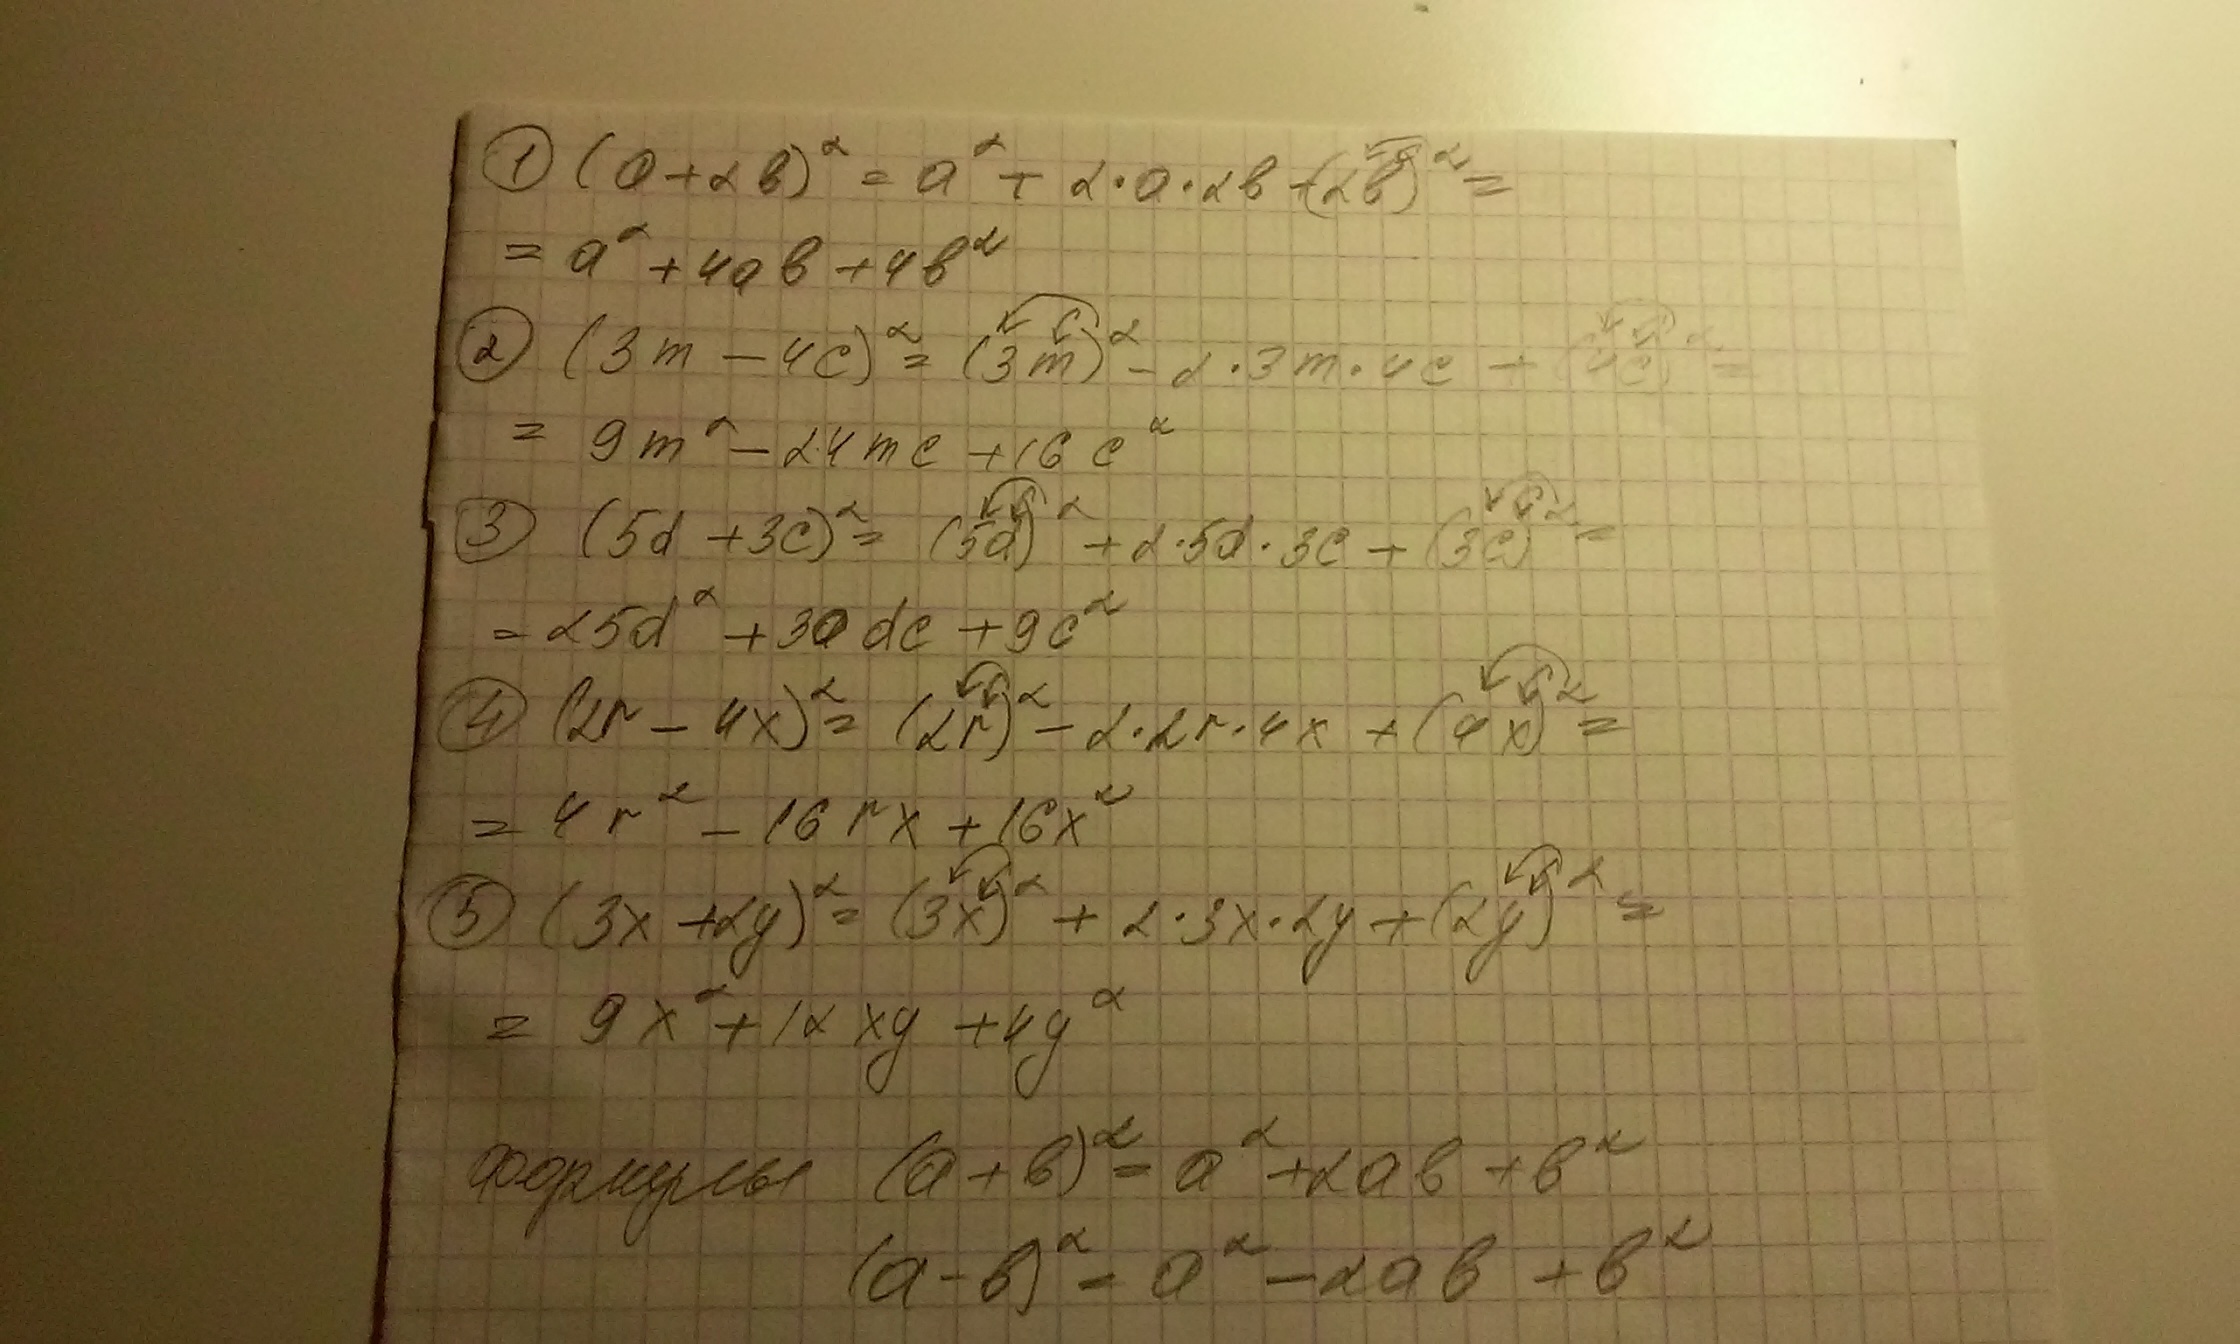 ① (a+2b)² = a² + 2·a·2b+(2b)² =
= a² +4ab +4b²
② (3m – 4c)² = (3m)² – 2·3m·4c + (4c)² =
= 9m² – 24mc +16c²
③ (5d +3c)² = (5d)² + 2·5d·3c + (3c)² =
= 25d² +30dc +9c²
④ (2r – 4x)² = (2r)² – 2·2r·4x + (4x)² =
= 4r² – 16rx +16x²
⑤ (3x +2y)² = (3x)² + 2·3x·2y + (2y)² =
= 9x² + 12xy +4y²
формулы (a+b)² = a² +2ab +b²
(a-b)² = a² –2ab +b²